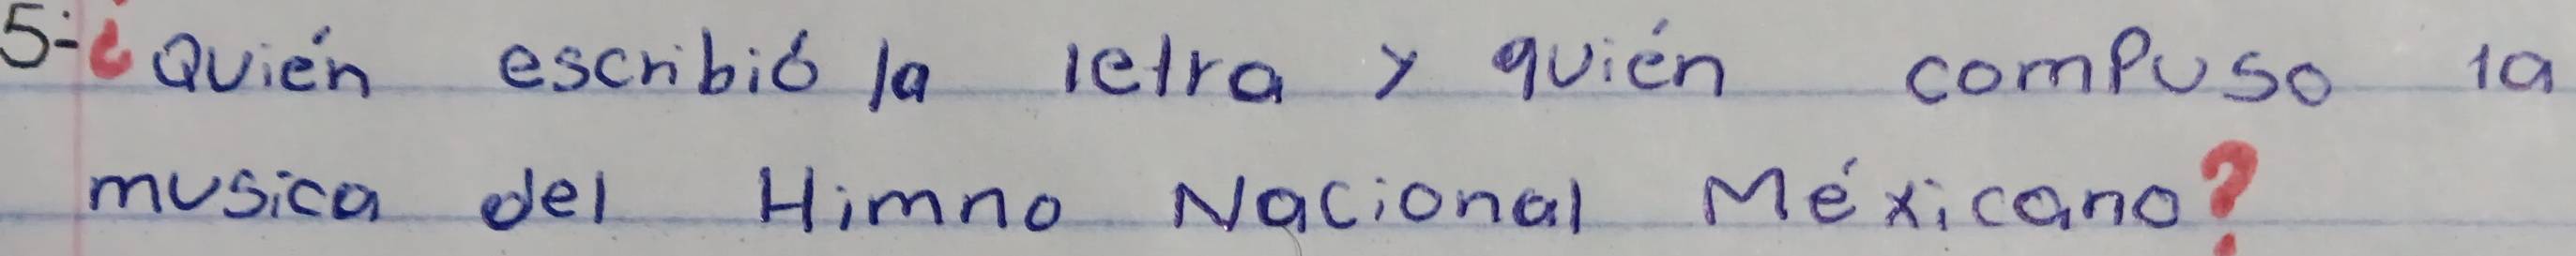 5.- ¿Quién escribió la letra y quién compuso la
musica del Himno Nacional Méxicano?